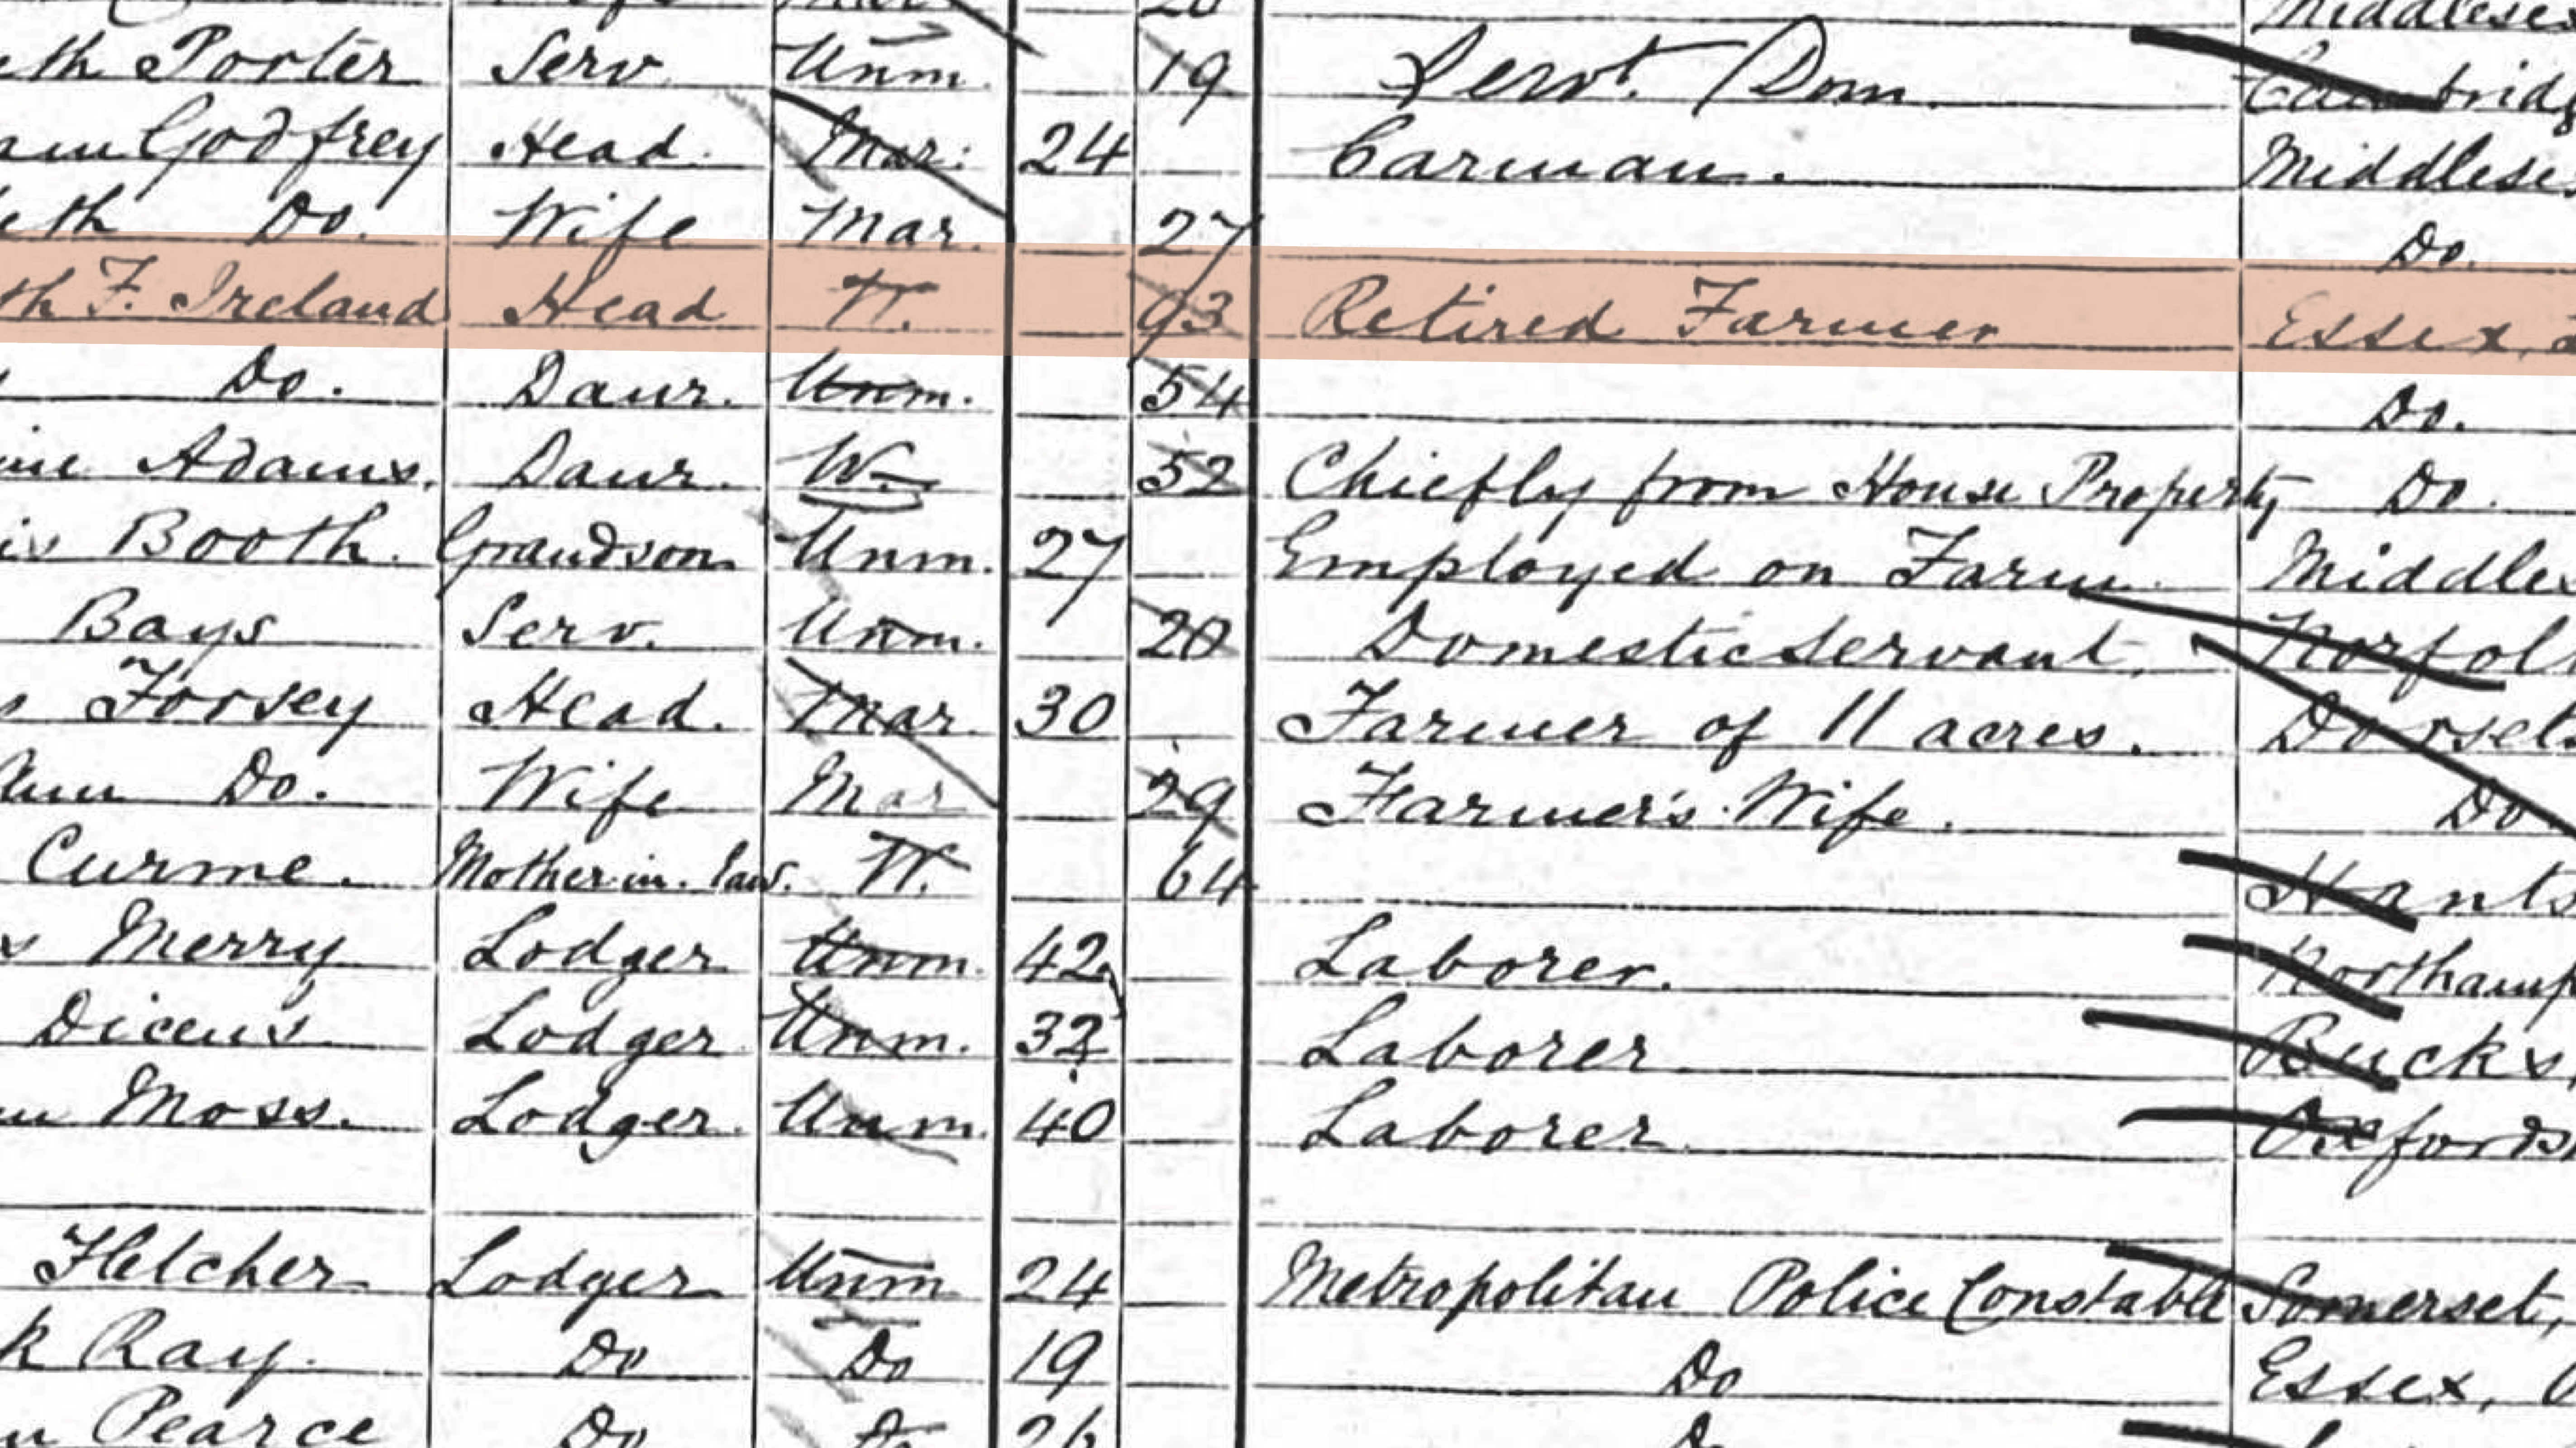 Porter Serv Unm. 19 Servt. Dom. Cambridg
Godfrey Head. Mar. 24 Carman. Middlese
eth Do. Wife Mar. 27 Do.
th F. Ireland Head W. 93 Retired Farmer Essex,
Do. Daur. Unm. 54 Do.
Adams. Daur. W. 52 Chiefly from House Property Do.
Booth. Grandson Unm. 27 Employed on Farm Middles
Bays Serv. Unm. 20 Domestic Servant. Norfol
Forsey Head. Mar. 30 Farmer of 11 acres. Dorset
Ann Do. Wife Mar 29 Farmer's Wife. Do
Curme. Mother-in-law. W. 64 Hants
s Merry Lodger Unm. 42 Laborer. Northamp
Dicens Lodger Unm. 32 Laborer Bucks
Moss. Lodger. Unm. 40 Laborer Oxfords
Fletcher Lodger Unm 24 Metropolitan Police Constable Somerset,
k Ray. Do Do 19 Do Essex,
Pearce Do Do 26 Do